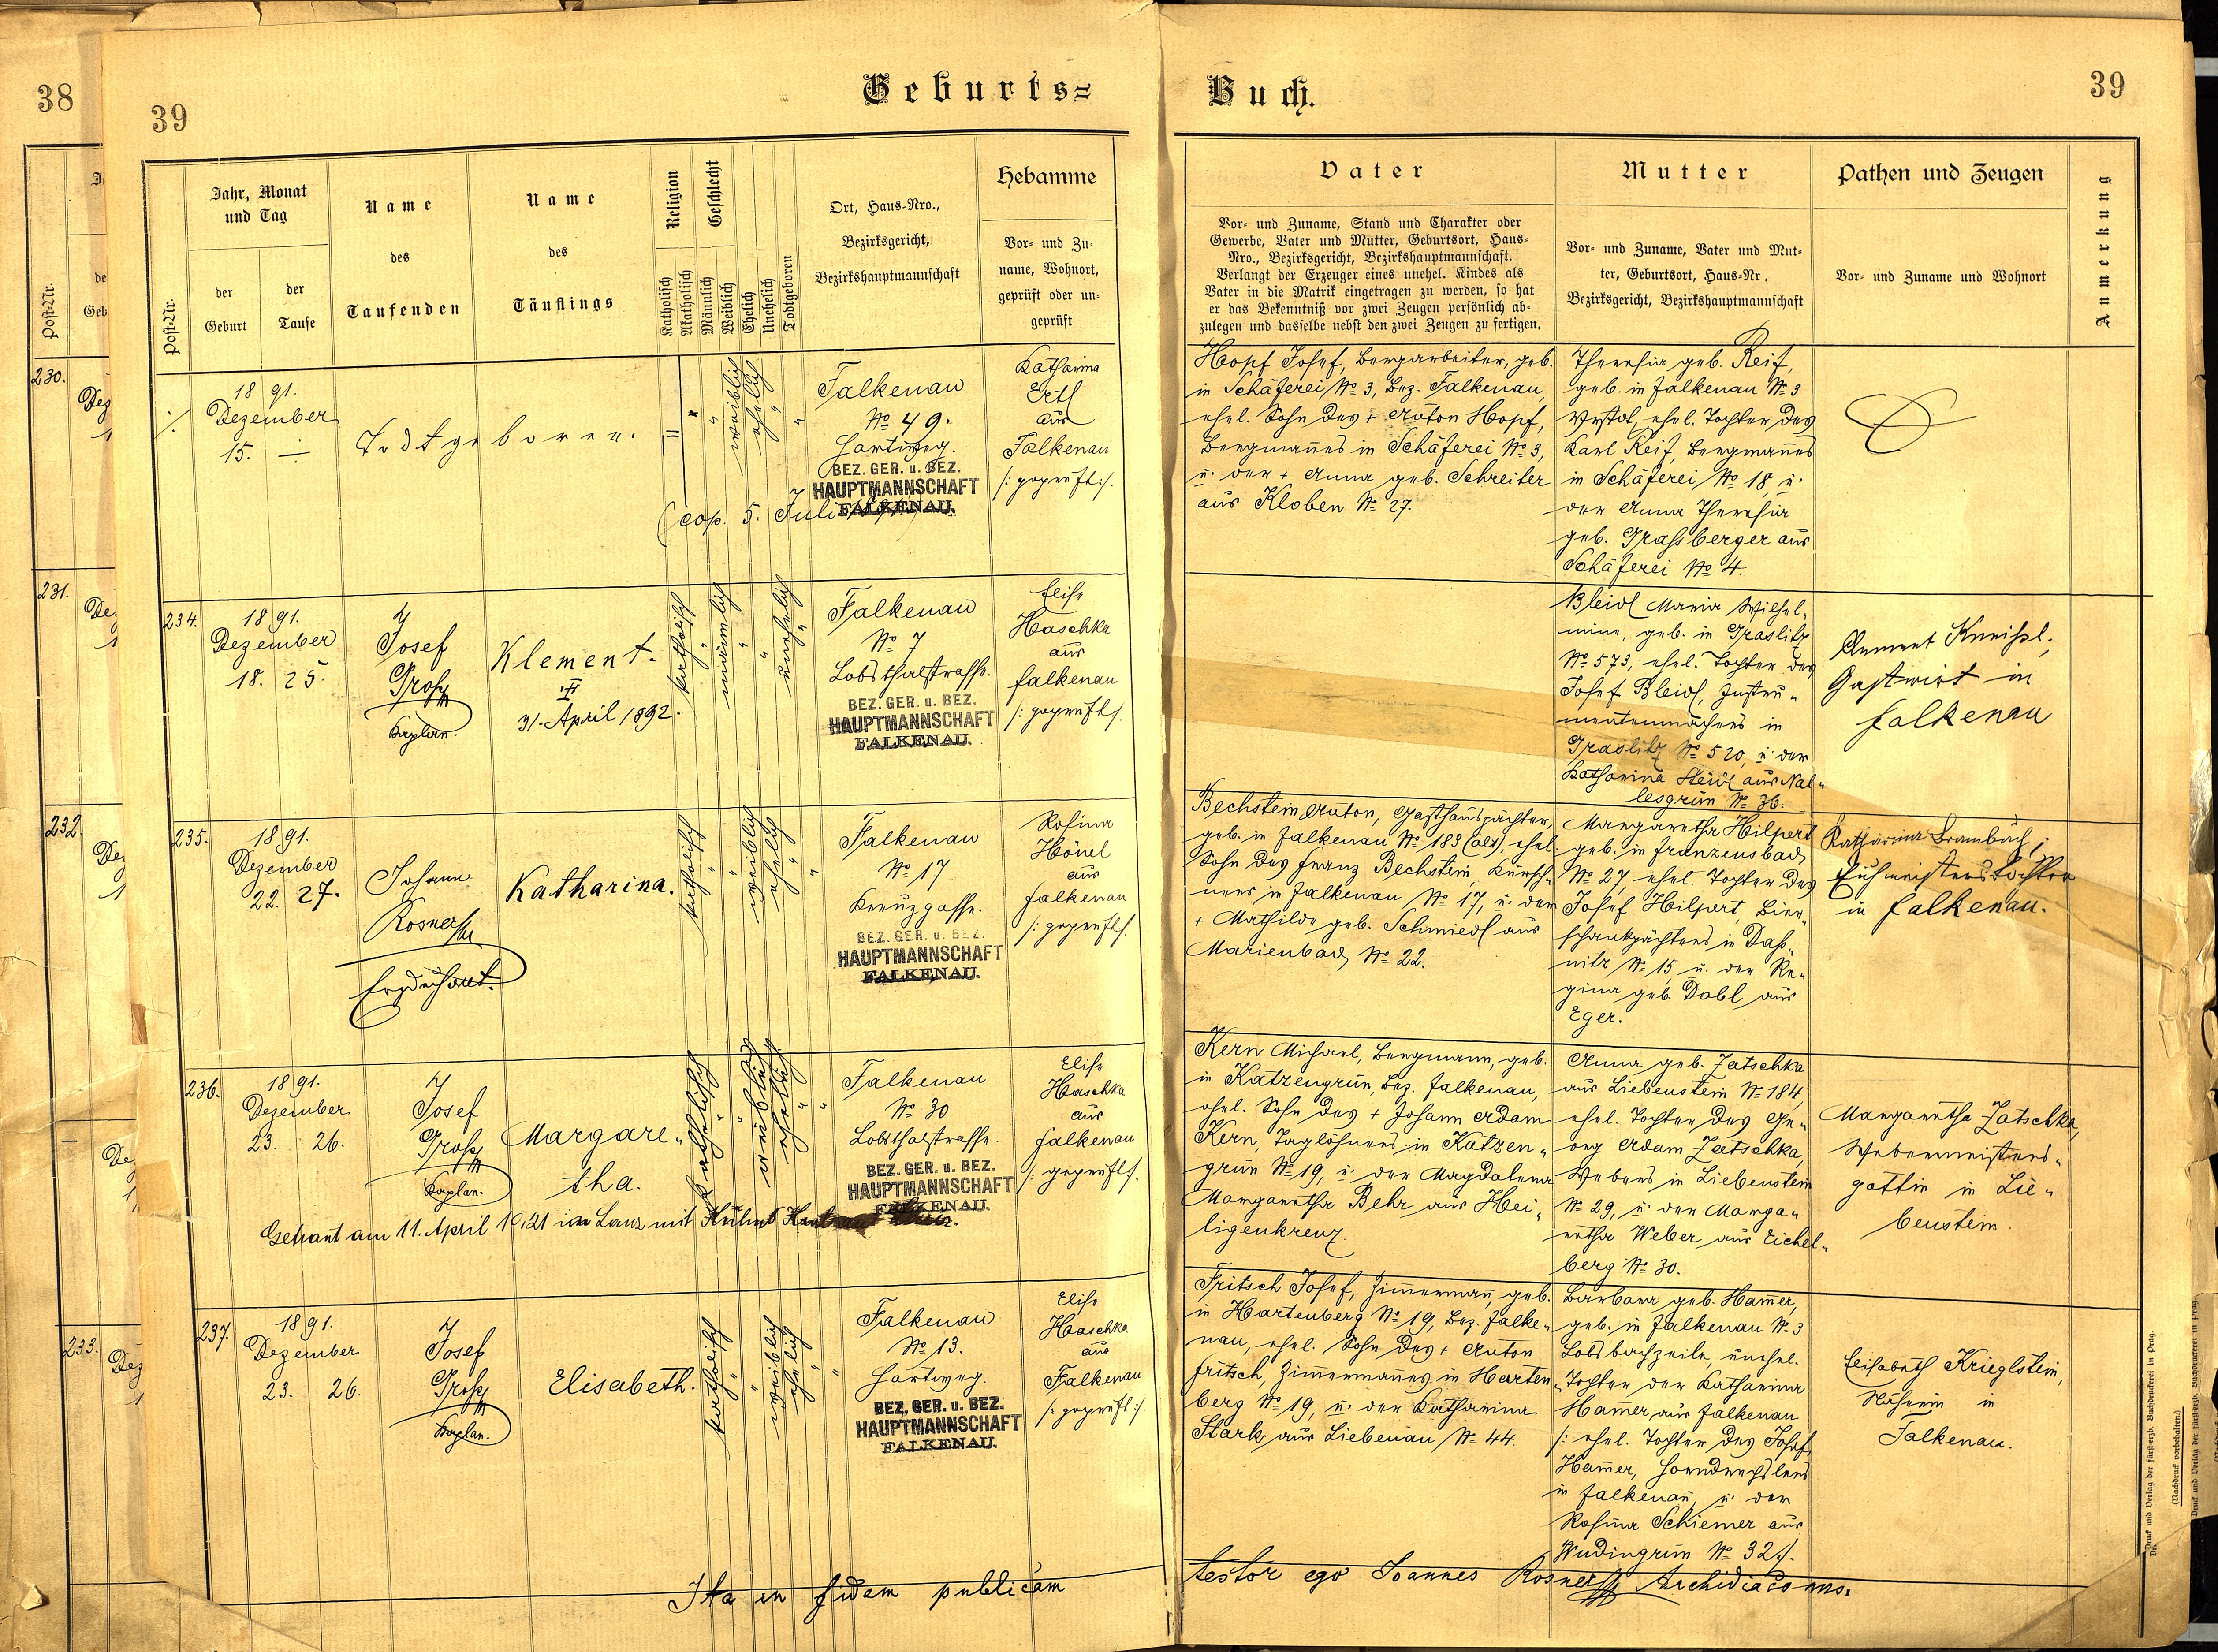 38
39
Geburts=
Buch.
39
Post-Nr.
Jahr, Monat
und Tag
der
Geburt
der
Taufe
Name
des
Taufenden
Name
des
Täuflings
Religion
Katholisch
Akatholisch
Geschlecht
Männlich
Weiblich
Ehelich
Unehelich
Todtgeboren
Ort, Haus-Nro.,
Bezirksgericht,
Bezirkshauptmannschaft
Hebamme
Vor- und Zu-
name, Wohnort,
geprüft oder un-
geprüft
Vater
Vor- und Zuname, Stand und Charakter oder
Gewerbe, Vater und Mutter, Geburtsort, Haus-
Nro., Bezirksgericht, Bezirkshauptmannschaft.
Verlangt der Erzeuger eines unehel. Kindes als
Vater in die Matrik eingetragen zu werden, so hat
er das Bekenntniß vor zwei Zeugen persönlich ab-
zulegen und dasselbe nebst den zwei Zeugen zu fertigen.
Mutter
Vor- und Zuname, Vater und Mut-
ter, Geburtsort, Haus-Nr.,
Bezirksgericht, Bezirkshauptmannschaft
Pathen und Zeugen
Vor- und Zuname und Wohnort
Anmerkung
230.
231.
232.
233.
1891.
Dezember
15. —
Todtgeboren.
weiblich
ehelich
Falkenau
No 49.
Hartweg.
BEZ. GER. u. BEZ.
HAUPTMANNSCHAFT
FALKENAU.
(cop. 5. Juli
Katharina
Ertl
aus
Falkenau
/: geprüft :/.
Hopf Josef, Bergarbeiter, geb.
in Schäferei No 3, Bez. Falkenau,
ehel. Sohn des + Anton Hopf,
Bergmannes in Schäferei No 3,
u. der + Anna geb. Schreiter
aus Kloben No 27.
Theresia geb. Reif,
geb. in Falkenau No 3
ehel. Tochter des
Karl Reif, Bergmannes
in Schäferei No 18 u.
der Anna Theresia
geb. Grassberger aus
Schäferei No 4.
234.
1891.
Dezember
18. 25.
Josef
Kaplan.
Klement.
31. April 1892.
katholisch
männlich
unehelich
Falkenau
No 7
Lobsthalstrasse.
BEZ. GER. u. BEZ.
HAUPTMANNSCHAFT
FALKENAU.
Elise
Haschka
aus
Falkenau
/: geprüft :/.
Bleidl Maria Wilhel-
mine, geb. in Graslitz
No 573, ehel. Tochter des
Josef Bleidl, Instru-
mentenmachers in
Graslitz No 520, u. der
Katharina aus
lesgrün No 36.
Clement Kneissl,
Gastwirt in
Falkenau
235.
1891.
Dezember
22. 27.
Johann
Rosner
Erzdechant.
Katharina.
katholisch
weiblich
ehelich
Falkenau
No 17
Kreuzgasse.
BEZ. GER. u. BEZ.
HAUPTMANNSCHAFT
FALKENAU.
Rosina
Hönel
aus
Falkenau
/: geprüft :/.
Bechstein Anton, Gasthauspächter,
geb. in Falkenau No 183 (alt), ehel.
Sohn des Franz Bechstein, Kürsch-
ners in Falkenau No 17, u. der
+ Mathilde geb. Schmiedl aus
Marienbad No 22.
Margaretha Hilpert
geb. in Franzensbad
No 27, ehel. Tochter des
Josef Hilpert, Bier-
schankpächters in Daß-
nitz No 15 u. der Re-
gina geb. Dobl aus
Eger.
Katharina Brambach,
in Falkenau.
236.
1891.
Dezember
23. 26.
Josef
Kaplan.
Margare-
tha.
katholisch
weiblich
ehelich
Falkenau
No 30
Lobsthalstrasse.
BEZ. GER. u. BEZ.
HAUPTMANNSCHAFT
FALKENAU.
Elise
Haschka
aus
Falkenau
/: geprüft :/.
Getraut am 11. April 1921 in mit
Kern Michael, Bergmann, geb.
in Katzengrün, Bez. Falkenau,
ehel. Sohn des + Johann Adam
Kern, Taglöhners in Katzen-
grün No 19, u. der Magdalena
Margaretha Behr aus Hei-
ligenkreuz.
Anna geb. Zatschka
aus Liebenstein No 184,
ehel. Tochter des Ge-
org Adam Zatschka,
Webers in Liebenstein
No 29, u. der Marga-
retha Weber aus Eichel-
berg No 30.
Margaretha Zatschka,
Webermeisters-
gattin in Lie-
benstein.
237.
1891.
Dezember
23. 26.
Josef
Kaplan.
Elisabeth.
katholisch
weiblich
ehelich
Falkenau
No 13.
Hartweg.
BEZ. GER. u. BEZ.
HAUPTMANNSCHAFT
FALKENAU.
Elise
Haschka
aus
Falkenau
/: geprüft :/.
Fritsch Josef, Zimmermann, geb.
in Hartenberg No 19, Bez. Falke-
nau, ehel. Sohn des + Anton
Fritsch, Zimmermannes in Harten-
berg No 19, u. der Katharina
Stark aus Liebenau No 44.
Barbara geb. Hammer,
geb. in Falkenau No 3
Lobsbachzeile, unehel.
Tochter der Katharina
Hammer aus Falkenau
/: ehel. Tochter des Josef
Hammer, Horndrechslers
in Falkenau, u. der
Rosina Schiemer aus
Wudingrün No 32 :/.
Elisabeth Krieglstein,
Näherin in
Falkenau.
Ita in fidem publicam
testor ego Joannes Rosner Archidiaconus.
Druck und Verlag der fürst-erzb. Buchdruckerei in Prag.
(Nachdruck vorbehalten.)